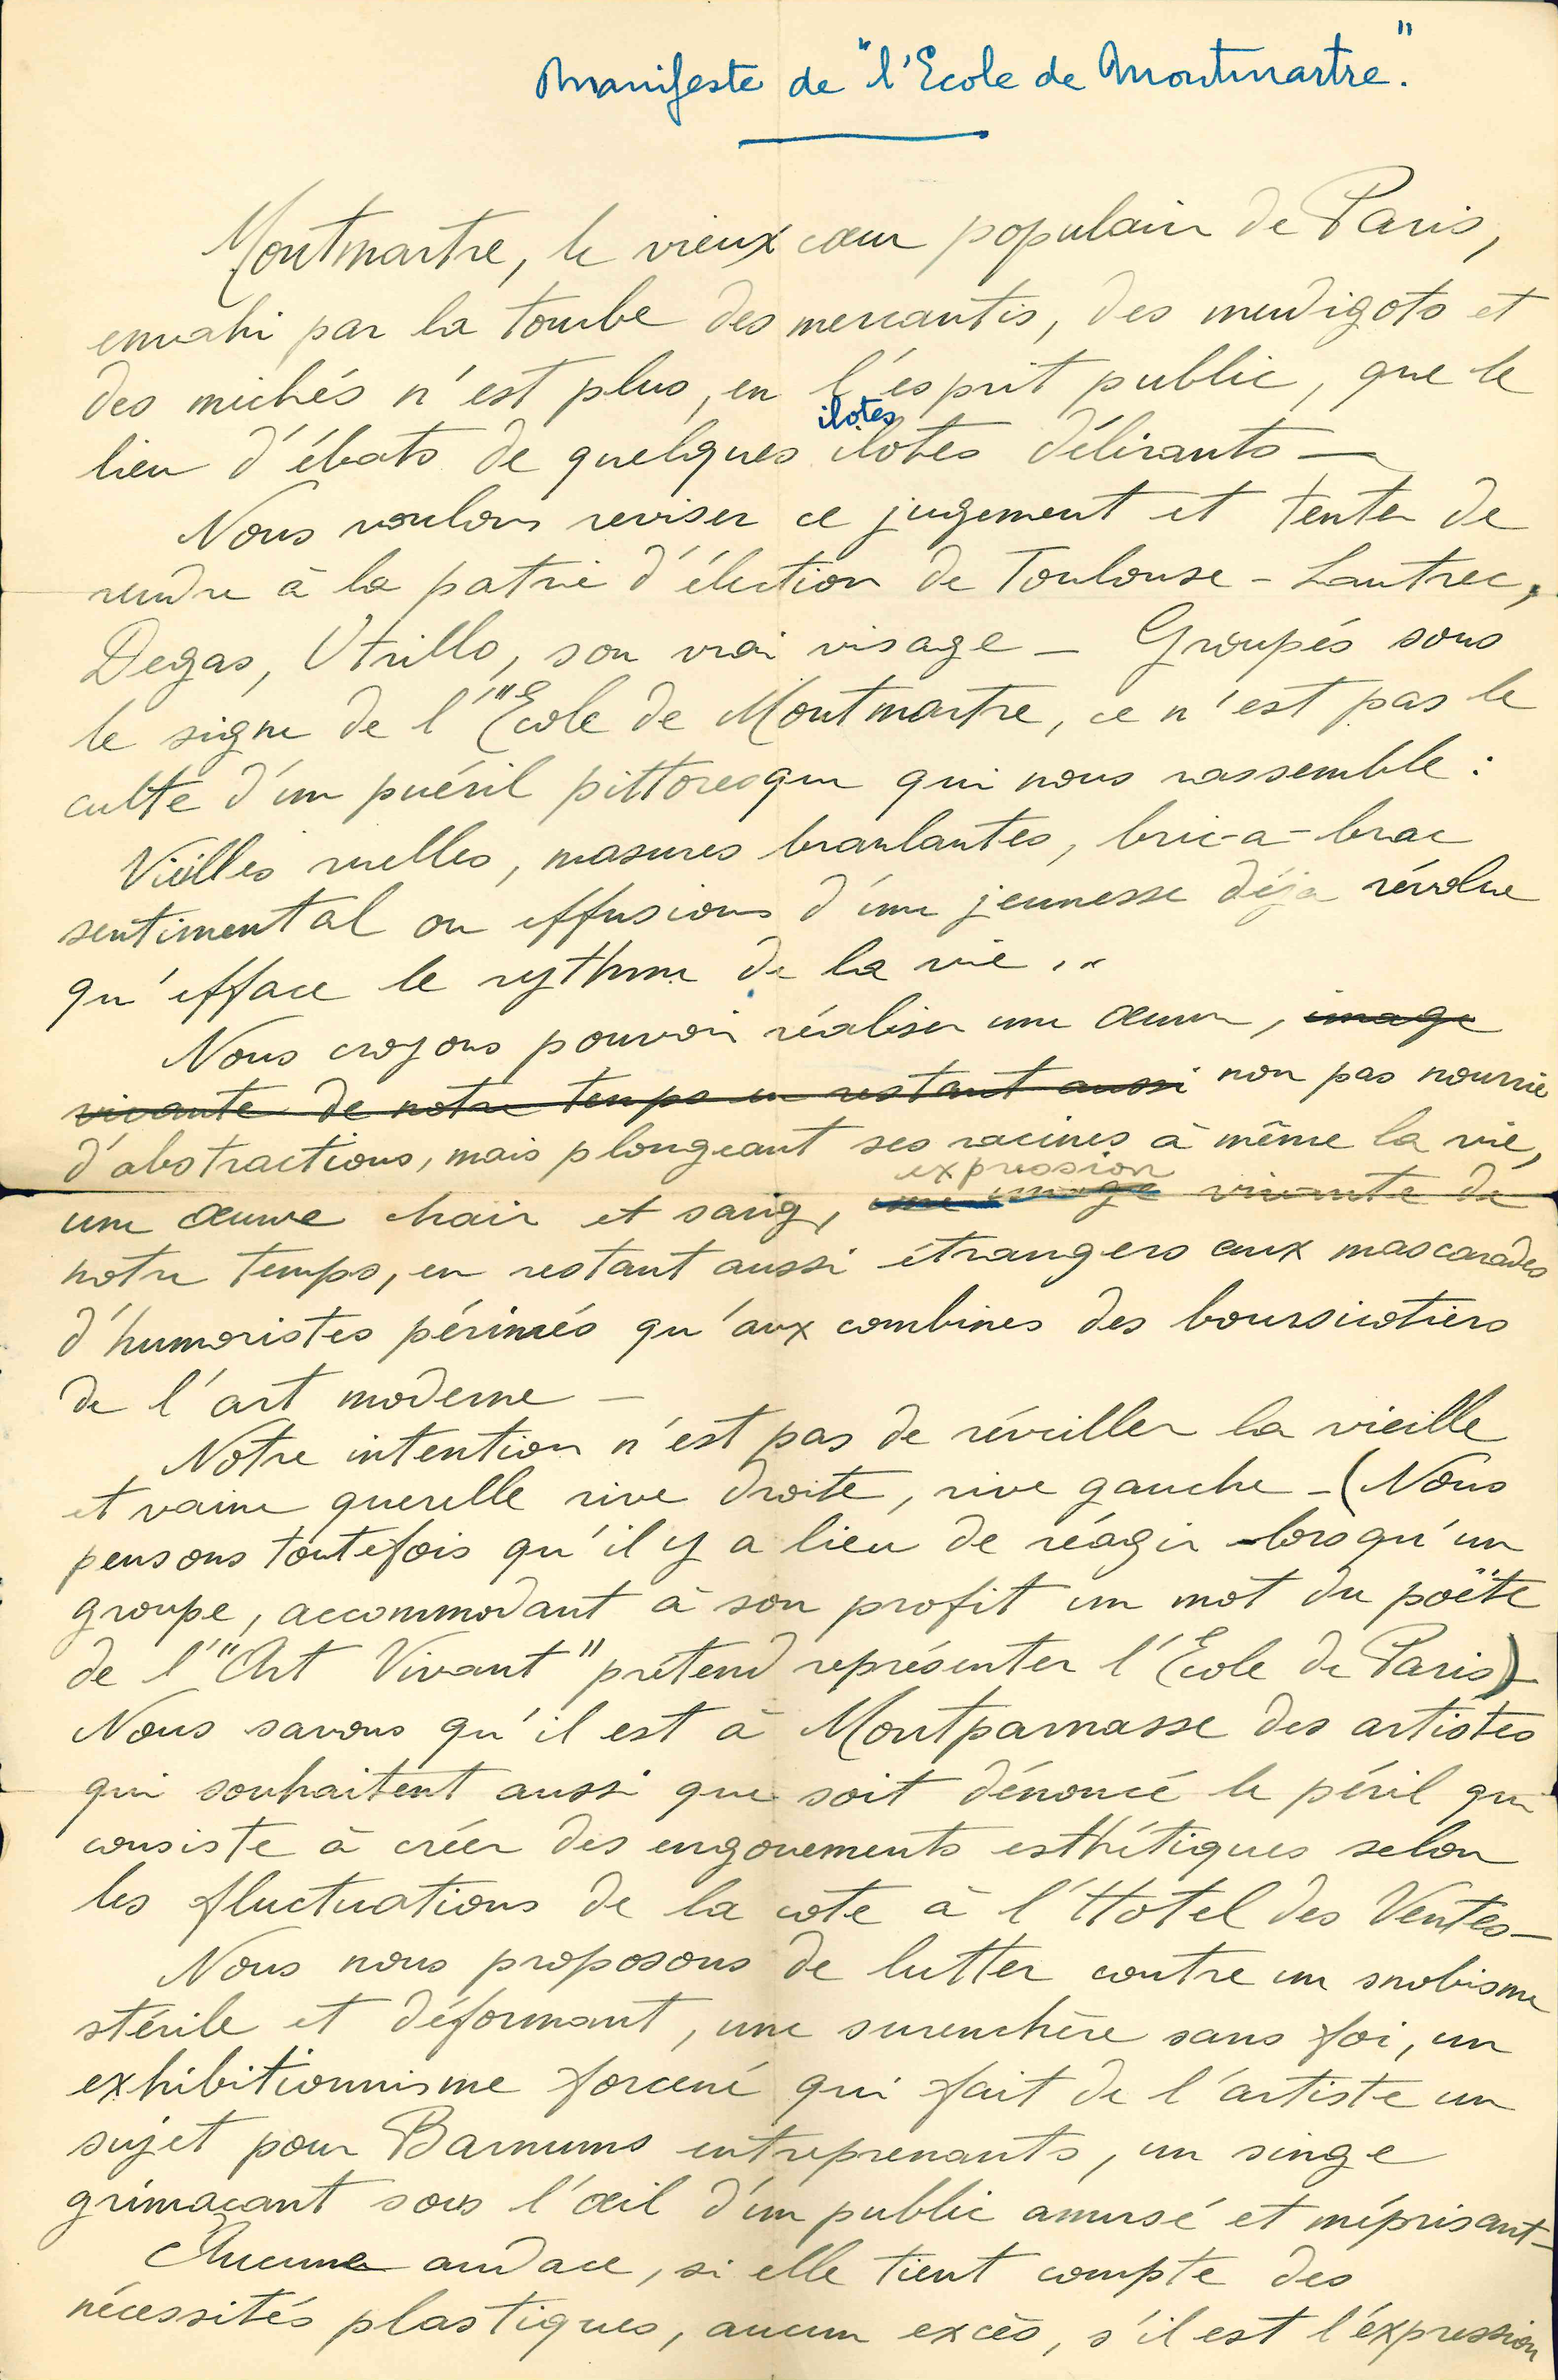 Manifeste de "l'Ecole de Montmartre."
Montmartre, le vieux cœur populaire de Paris,
envahi par la tourbe des mercantis, des mendigots et
des michés n'est plus, en l'esprit public, que le
ilotes
lieu d'ébats de quelques ilotes délirants —
Nous voulons reviser ce jugement et tenter de
rendre à la patrie d'élection de Toulouse-Lautrec,
Degas, Utrillo, son vrai visage — Groupés sous
le signe de l'"Ecole de Montmartre, ce n'est pas le
culte d'un puéril pittoresque qui nous rassemble :
Vieilles ruelles, masures branlantes, bric-a-brac
sentimental ou effusions d'une jeunesse déja révolue
qu'efface le rythme de la vie ...
Nous croyons pouvoir réaliser une œuvre, image
vivante de notre temps en restant aussi non pas nourrie
d'abstractions, mais plongeant ses racines à même la vie,
expression
une œuvre chair et sang, une image vivante de
notre temps, en restant aussi étrangers aux mascarades
d'humoristes périmés qu'aux combines des boursicotiers
de l'art moderne —
Notre intention n'est pas de réveiller la vieille
et vaine querelle rive droite, rive gauche — (Nous
pensons toutefois qu'il y a lieu de réagir lorsqu'un
groupe, accommodant à son profit un mot du poëte
de l'"Art Vivant" prétend représenter l'Ecole de Paris) —
Nous savons qu'il est à Montparnasse des artistes
qui souhaitent aussi que soit dénoncé le péril qui
consiste à créer des engouements esthétiques selon
les fluctuations de la cote à l'Hotel des Ventes —
Nous nous proposons de lutter contre un snobisme
stérile et déformant, une surenchère sans foi, un
exhibitionnisme forcené qui fait de l'artiste un
sujet pour Barnums entreprenants, un singe
grimaçant sous l'œil d'un public amusé et méprisant —
Aucune audace, si elle tient compte des
nécessités plastiques, aucun excès, s'il est l'expression